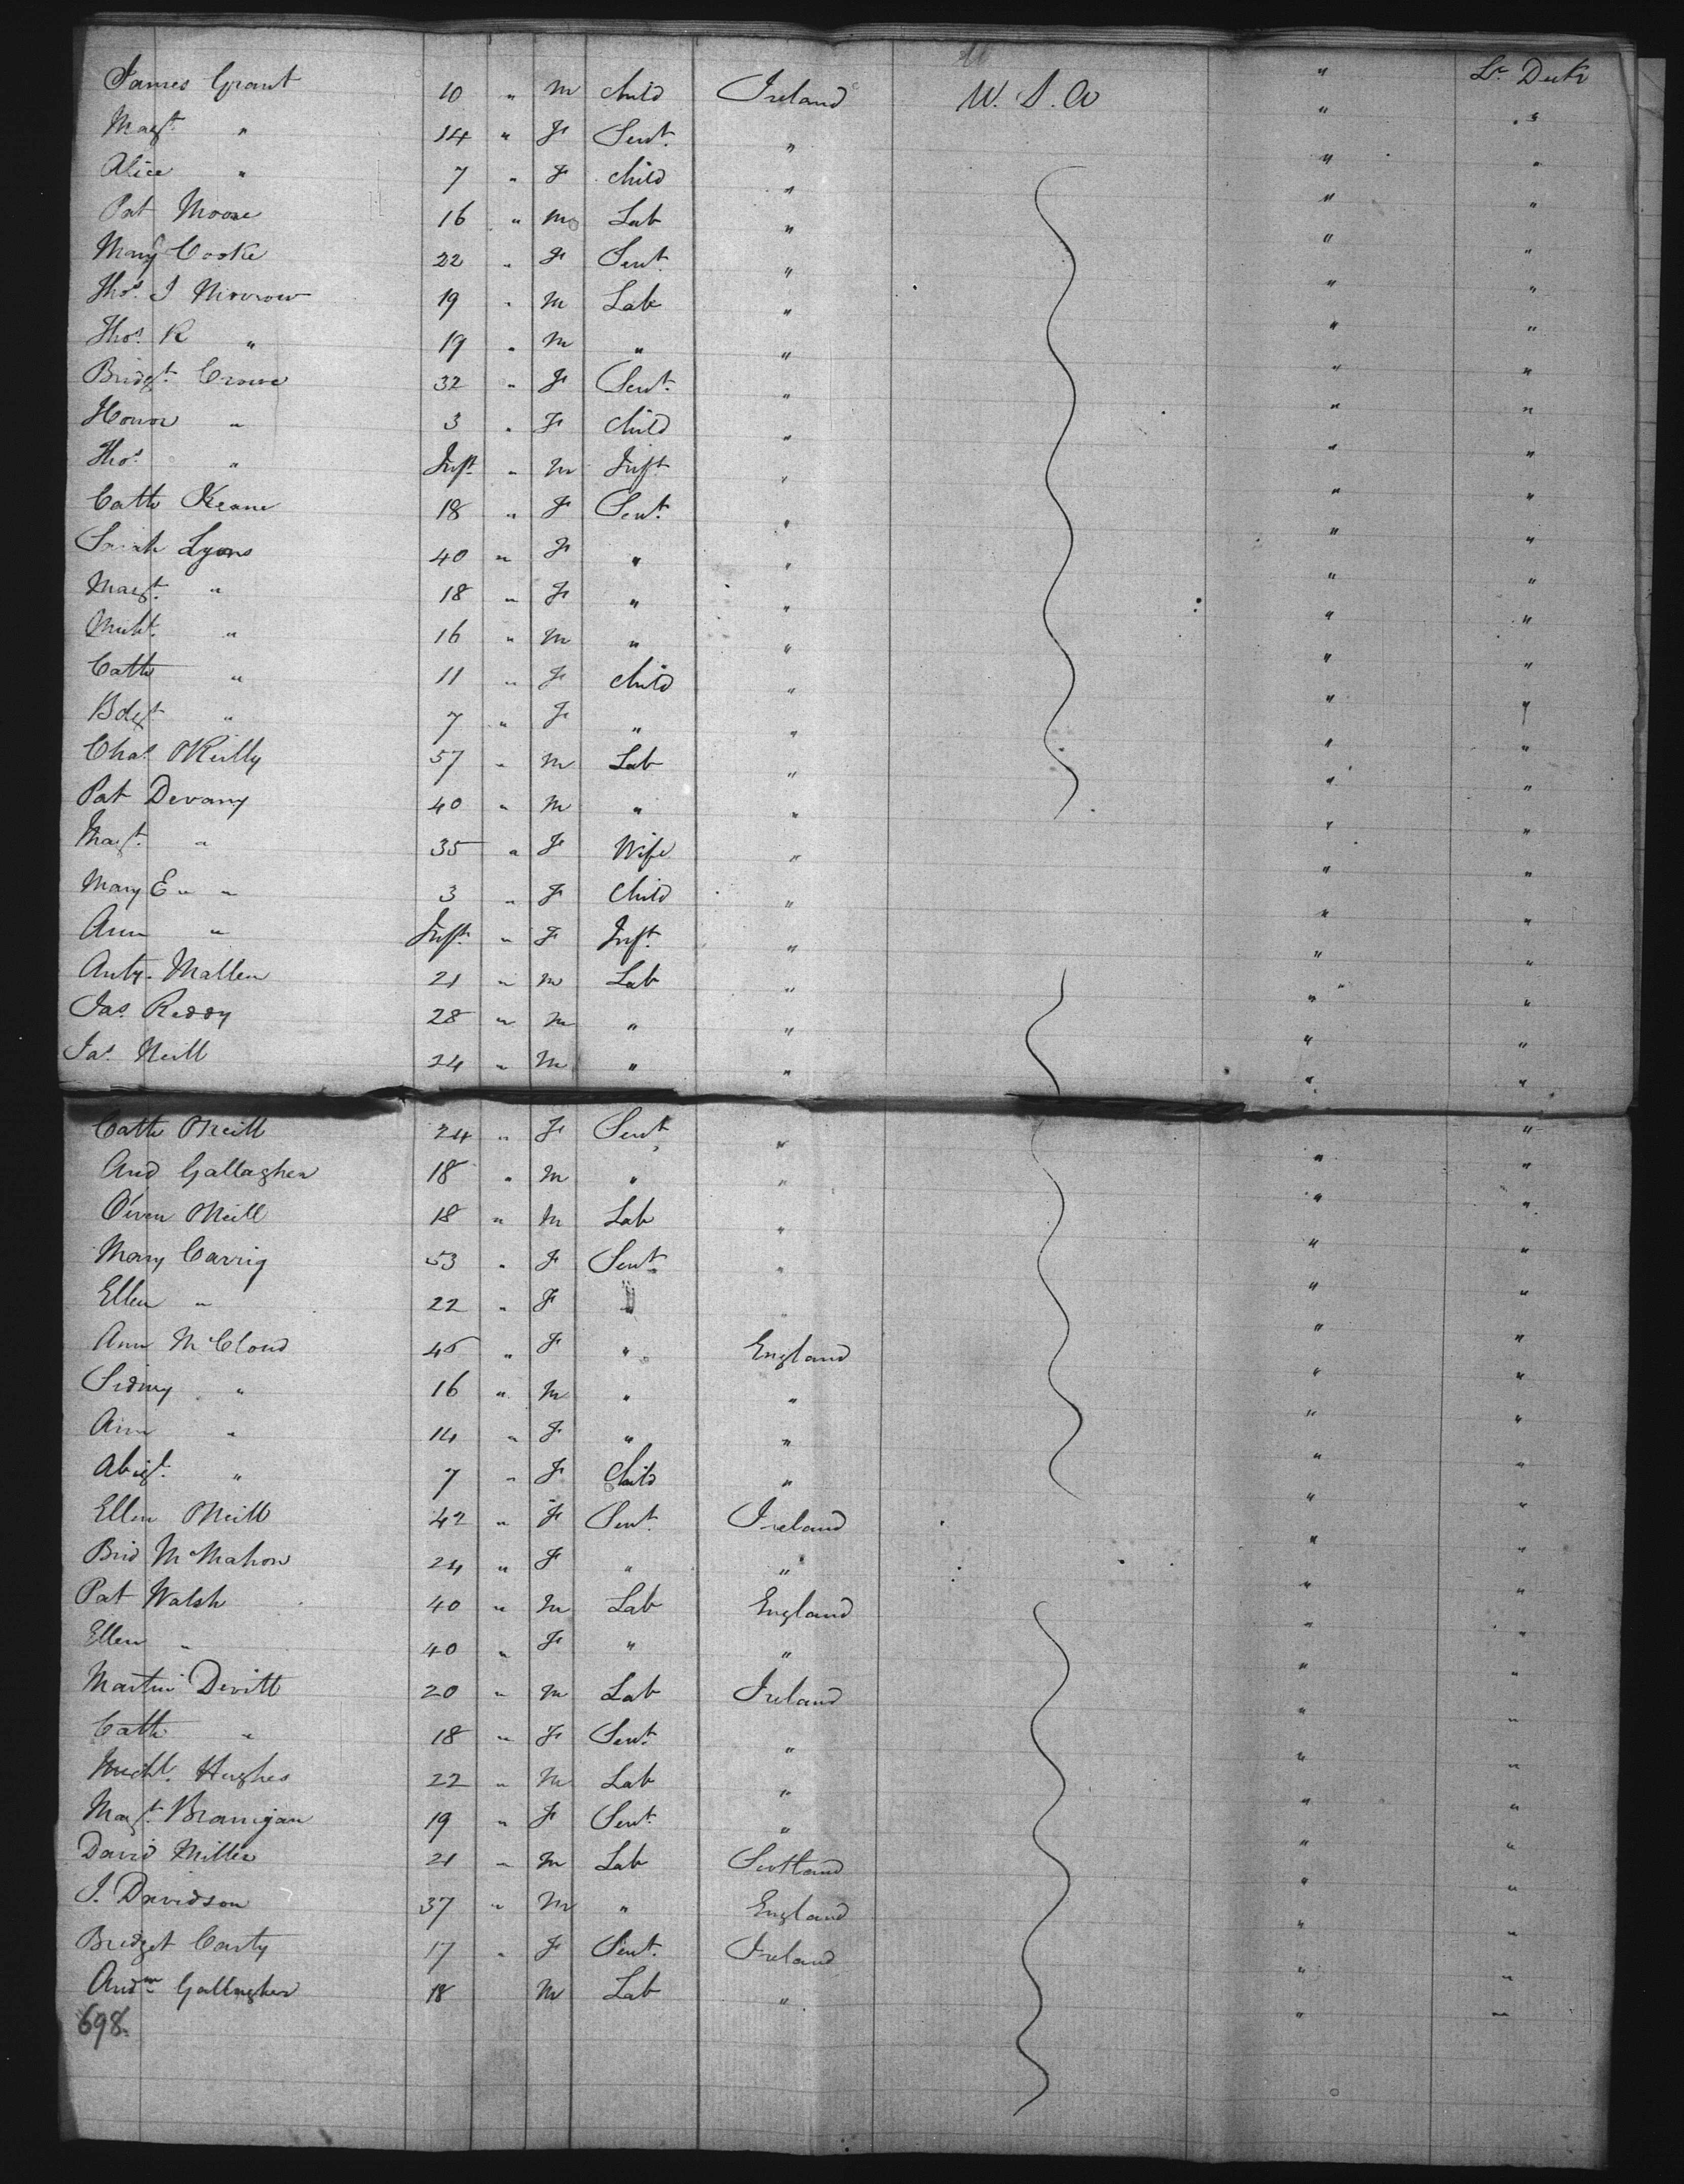 James Grant 10 " m child Ireland U. S. A " Lr. Deck
Magt. " 14 " F Servt. " " "
Alice " 7 " F child " " "
Pat Moore 16 " m Lab " " "
Mary Cooke 22 " F Servt. " " "
Thos. J Morrow 19 " m Lab " " "
Thos. R " 19 " m " " " "
Bridgt. Crowe 32 " F Servt. " " "
Honor " 3 " F child " " "
Thos. " Inft " m Inft " " "
Cathe Keane 18 " F Servt. " " "
Sarah Lyons 40 " F " " " "
Magt. " 18 " F " " " "
Michl. " 16 " m " " " "
Cathe " 11 " F child " " "
Bdgt " 7 " F " " " "
Chas. OReilly 57 " m Lab " " "
Pat Devany 40 " m " " " "
Magt. " 35 " F Wife " " "
Mary E " " 3 " F child " " "
Ann " Inft. " F Inft. " " "
Anty. Mallen 21 " m Lab " " "
Jas. Reddy 28 " m " " " "
Jas. Neill 24 " m " " " "
Cathe ONeill 24 " F Servt " "
And Gallagher 18 " m " " " "
Owen ONeill 18 " m Lab " " "
Mary Carrig 53 " F Servt. " " "
Ellen " 22 " F " " " "
Ann McCloud 45 " F " England " "
Sidney " 16 " m " " " "
Ann " 14 " F " " " "
Abigl. " 7 " F Child " " "
Ellen ONeill 42 " F Servt. Ireland " "
Brid McMahon 24 " F " " " "
Pat Walsh 40 " m Lab England " "
Ellen " 40 " F " " " "
Martin Devitt 20 " m Lab Ireland " "
Cathe " 18 " F Servt. " " "
Michl. Hughes 22 " m Lab " " "
Magt. Branigan 19 " F Servt. " " "
David Miller 21 " m Lab Scotland " "
J. Davidson 37 " m " England " "
Bridget Carty 17 " F Servt. Ireland " "
Andw Gallagher 18 m Lab " " "
698